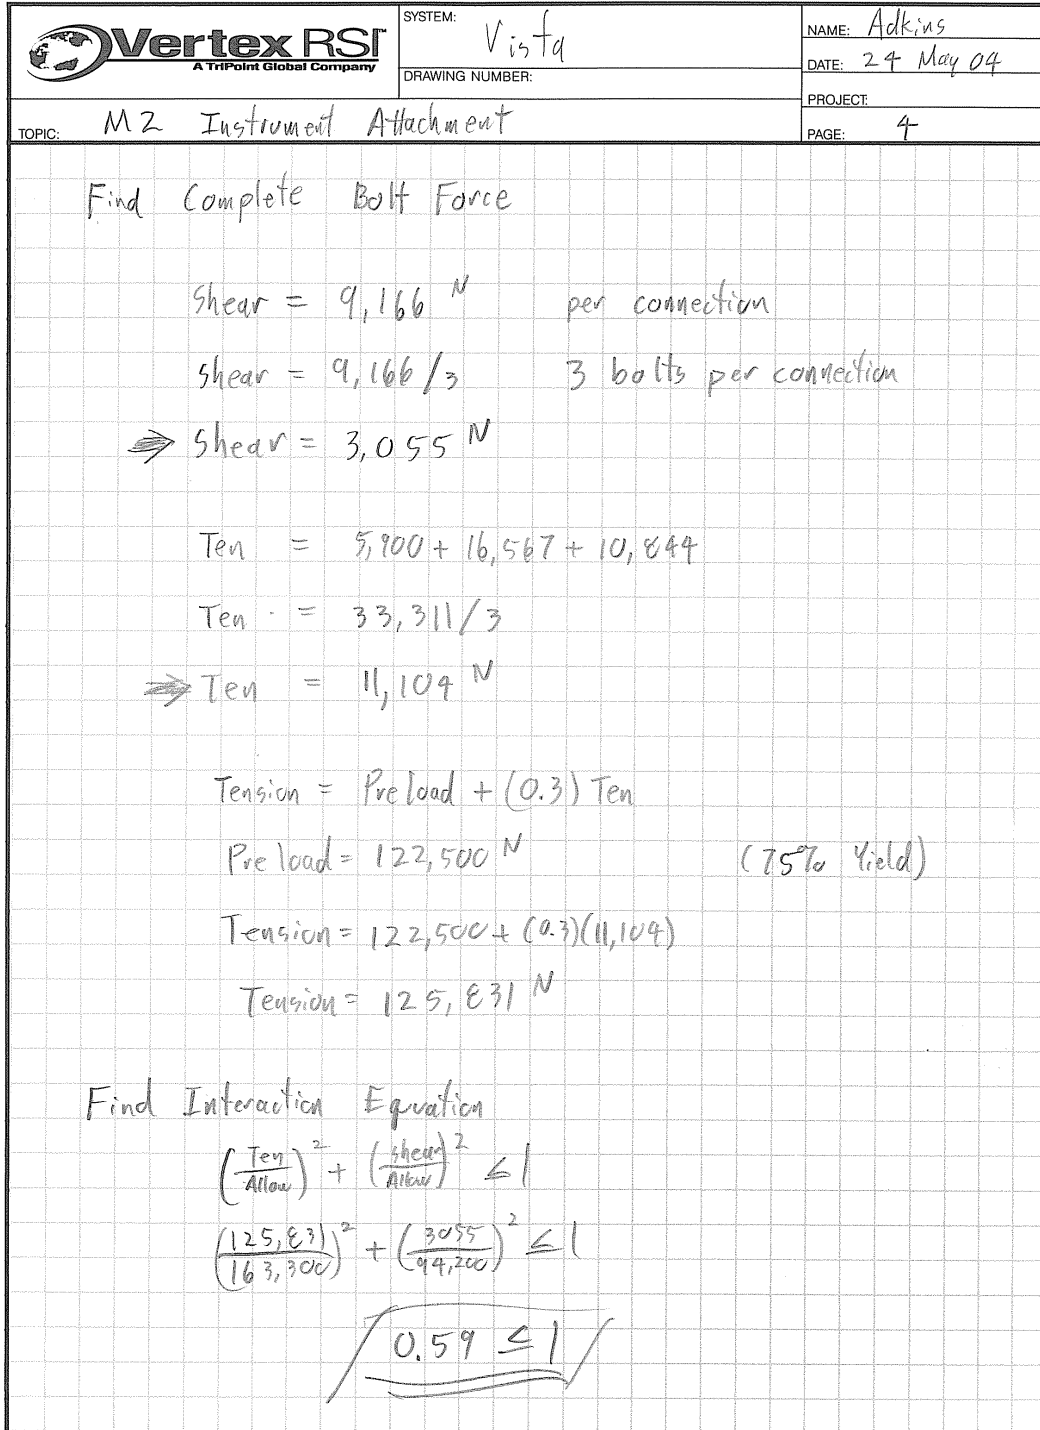 Vertex RSI
A TriPoint Global Company
SYSTEM: Vista
DRAWING NUMBER:
NAME: Adkins
DATE: 24 May 04
PROJECT:
PAGE: 4
TOPIC: M2 Instrument Attachment
Find Complete Bolt Force
Shear = 9,166 N per connection
Shear = 9,166/3 3 bolts per connection
⇒ Shear = 3,055 N
Ten = 5,900 + 16,567 + 10,844
Ten = 33,311/3
⇒ Ten = 11,104 N
Tension = Preload + (0.3) Ten
Preload = 122,500 N (75% Yield)
Tension = 122,500 + (0.3)(11,104)
Tension = 125,831 N
Find Interaction Equation
(Ten/Allow)² + (Shear/Allow)² ≤ 1
(125,831/163,300)² + (3055/94,200)² ≤ 1
0.59 ≤ 1